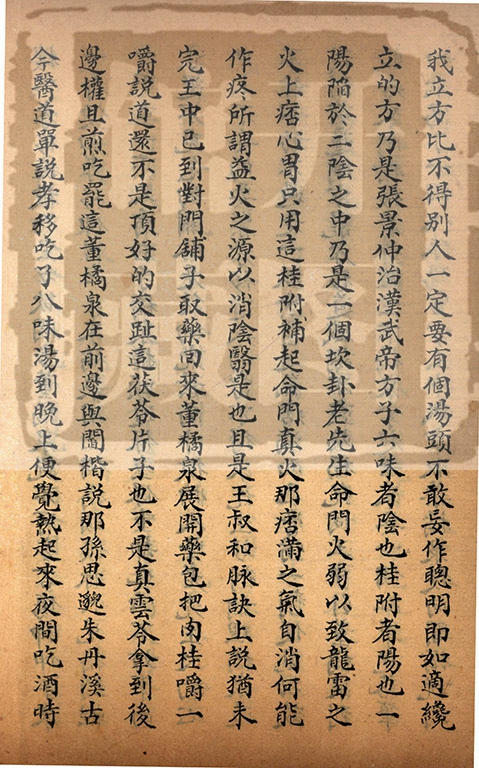 我立方比不得別人一定要有個湯頭不敢妄作聰明即如適纔
立的方乃是張景仲治漢武帝方子六味者陰也桂附者陽也一
陽陷於二陰之中乃是一個坎卦老先生命門火弱以致龍雷之
火上痞心胃只用這桂附補起命門真火那痞滿之氣自消何能
作疼所謂益火之源以消陰翳是也且是王叔和脉訣上說猶未
完王中已到對門舖子取藥回來董橘泉展開藥包把肉桂嚼一
嚼說道還不是頂好的交趾這茯苓片子也不是真雲苓拿到後
邊權且煎吃罷這董橘泉在前邊與閻楷說那孫思邈朱丹溪古
今醫道單說孝移吃了八味湯到晚上便覺熱起來夜間吃酒時